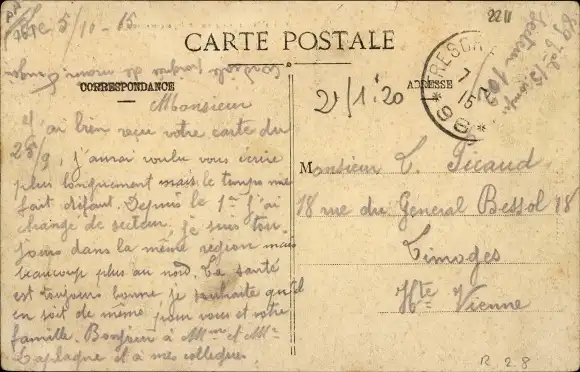 le 5/11-15
2211
CARTE POSTALE
CORRESPONDANCE
ADRESSE
21/1:20
TRESOR
7
15
*99*
secteur 102
Monsieur
J'ai bien reçu votre carte du
25/9, j'aurai voulu vous écrire
plus longuement mais le temps me
fait défaut. Depuis le 1er j'ai
changé de secteur, je suis tou-
jours dans la même région mais
beaucoup plus au nord. La santé
est toujours bonne, je souhaite qu'il
en soit de même pour vous et votre
famille. Bonjour à Mme et Mr
Laplagne et à mes collègues.
Cordiale poignée de main
Monsieur C. Picaud
18 rue du General Bessol 18
Limoges
Hte Vienne
R 28